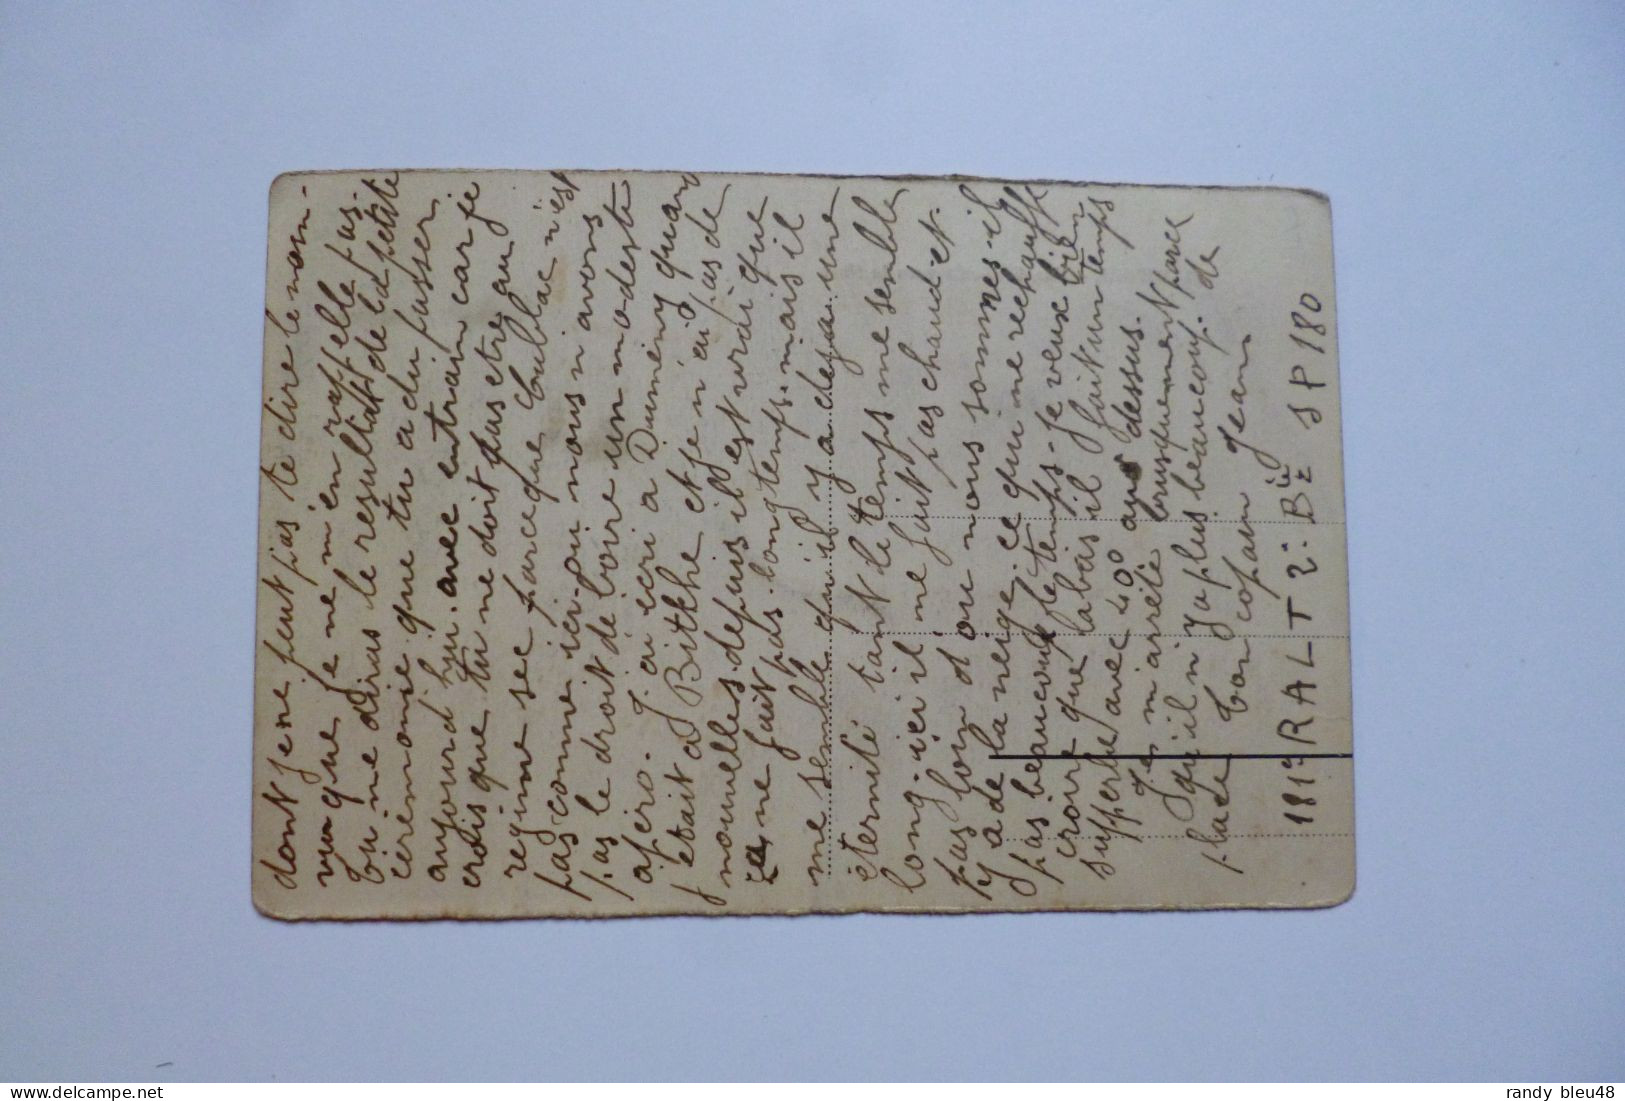 dont je ne peut pas te dire le nom-
vu que je ne m'en rappelle pas.
tu me diras le resultat de la petite
ceremonie que tu a du passer
aujourd hui. avec entrain car je
crois que tu ne doit pas etre au
regime sec parceque Coublac n'est
pas comme ici. ou nous n avons
pas le droit de boire un modeste
apero. J ai ecri a Dumeny quand
jetait a Bitche et je n'ai pas de
nouvelles depuis il est vrai que
ça ne fait pas longtemps. mais il
me semble qu'il y a deja une
éternité tant le temps me semble
long. ici il ne fait pas chaud et.
pas loin d ou nous sommes. il
y a de la neige. ce qui ne rechauffe
pas beaucoup le temps. je veux bien
croire que labas il fait un temps
supperbe avec 40° au dessus.
Je m'arrête brusquement parce
qu'il n y a plus beaucoup. de
place
ton copain Jean
181e RALT 2e. Bie SP 180
randy bleu48